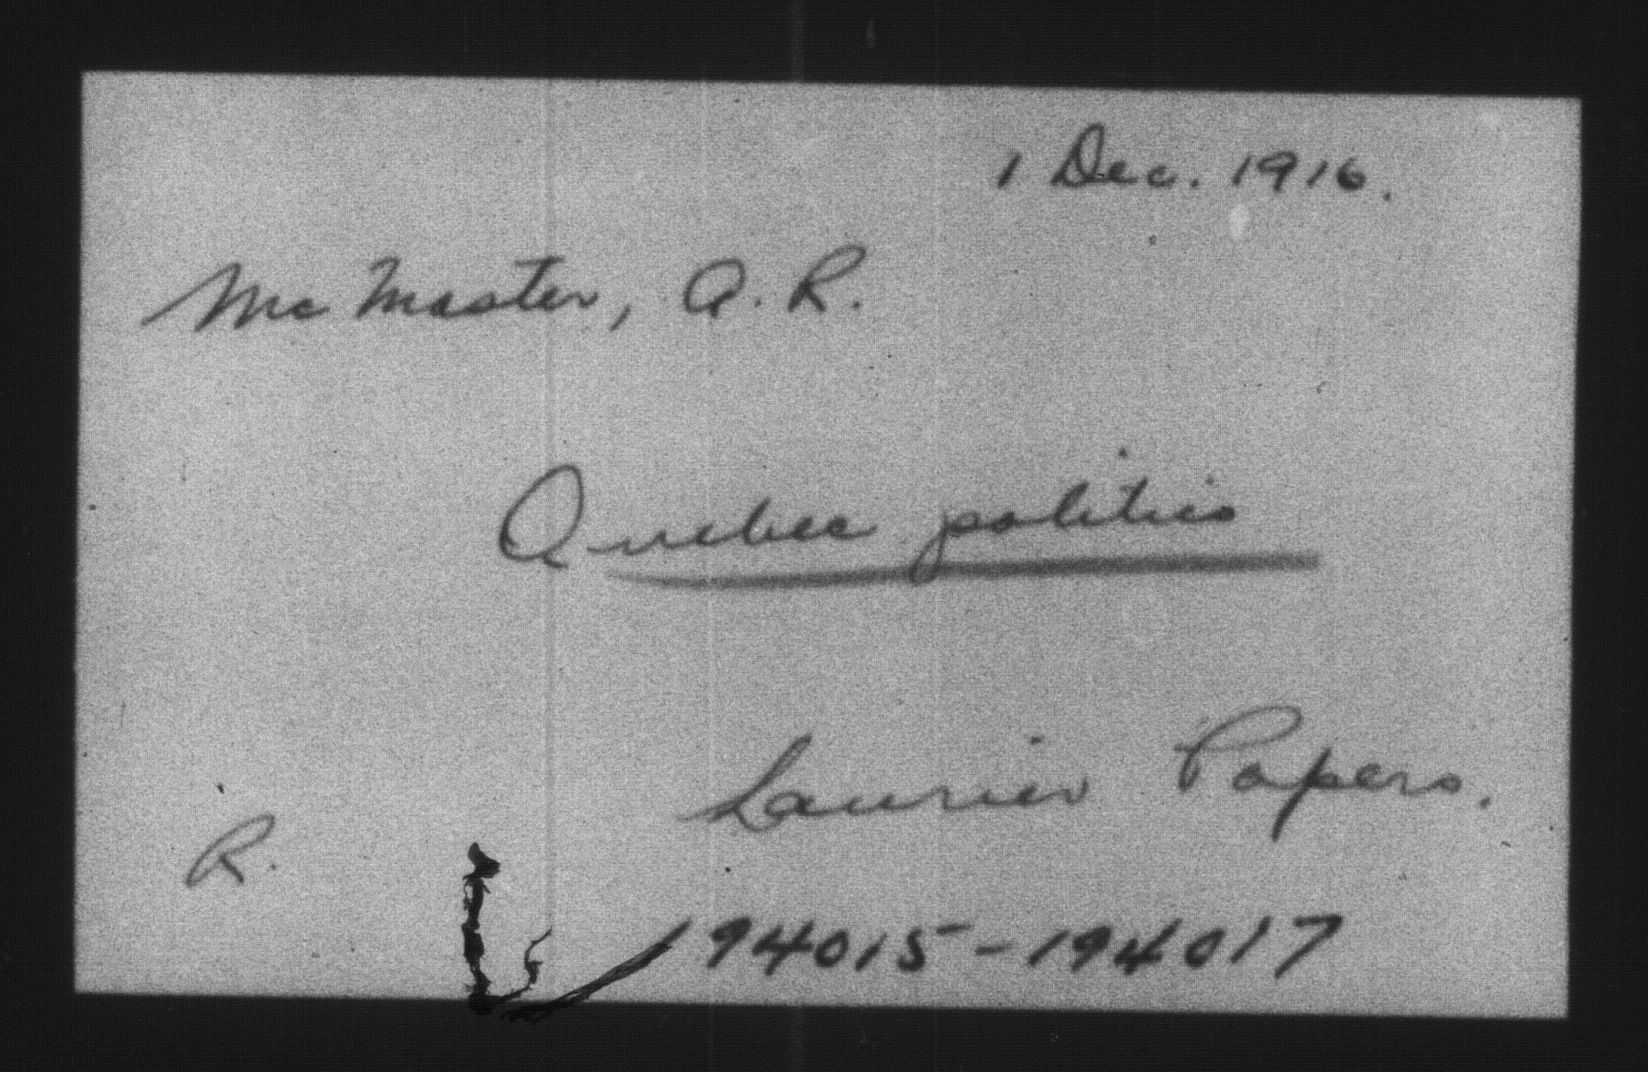 1 Dec. 1916.
McMaster, A. R.
Quebec politics
Laurier Papers.
R.
194015-194017